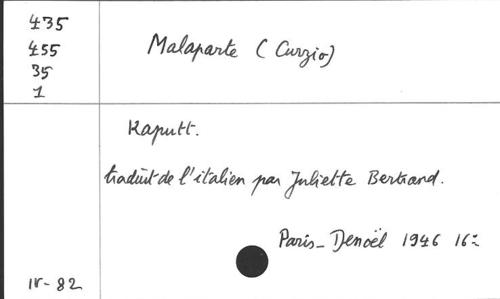 435
455
35
1
Malaparte (Curzio)
Kaputt.
traduit de l'italien par Juliette Bertrand.
Paris - Denoël 1946 16º
IV - 82